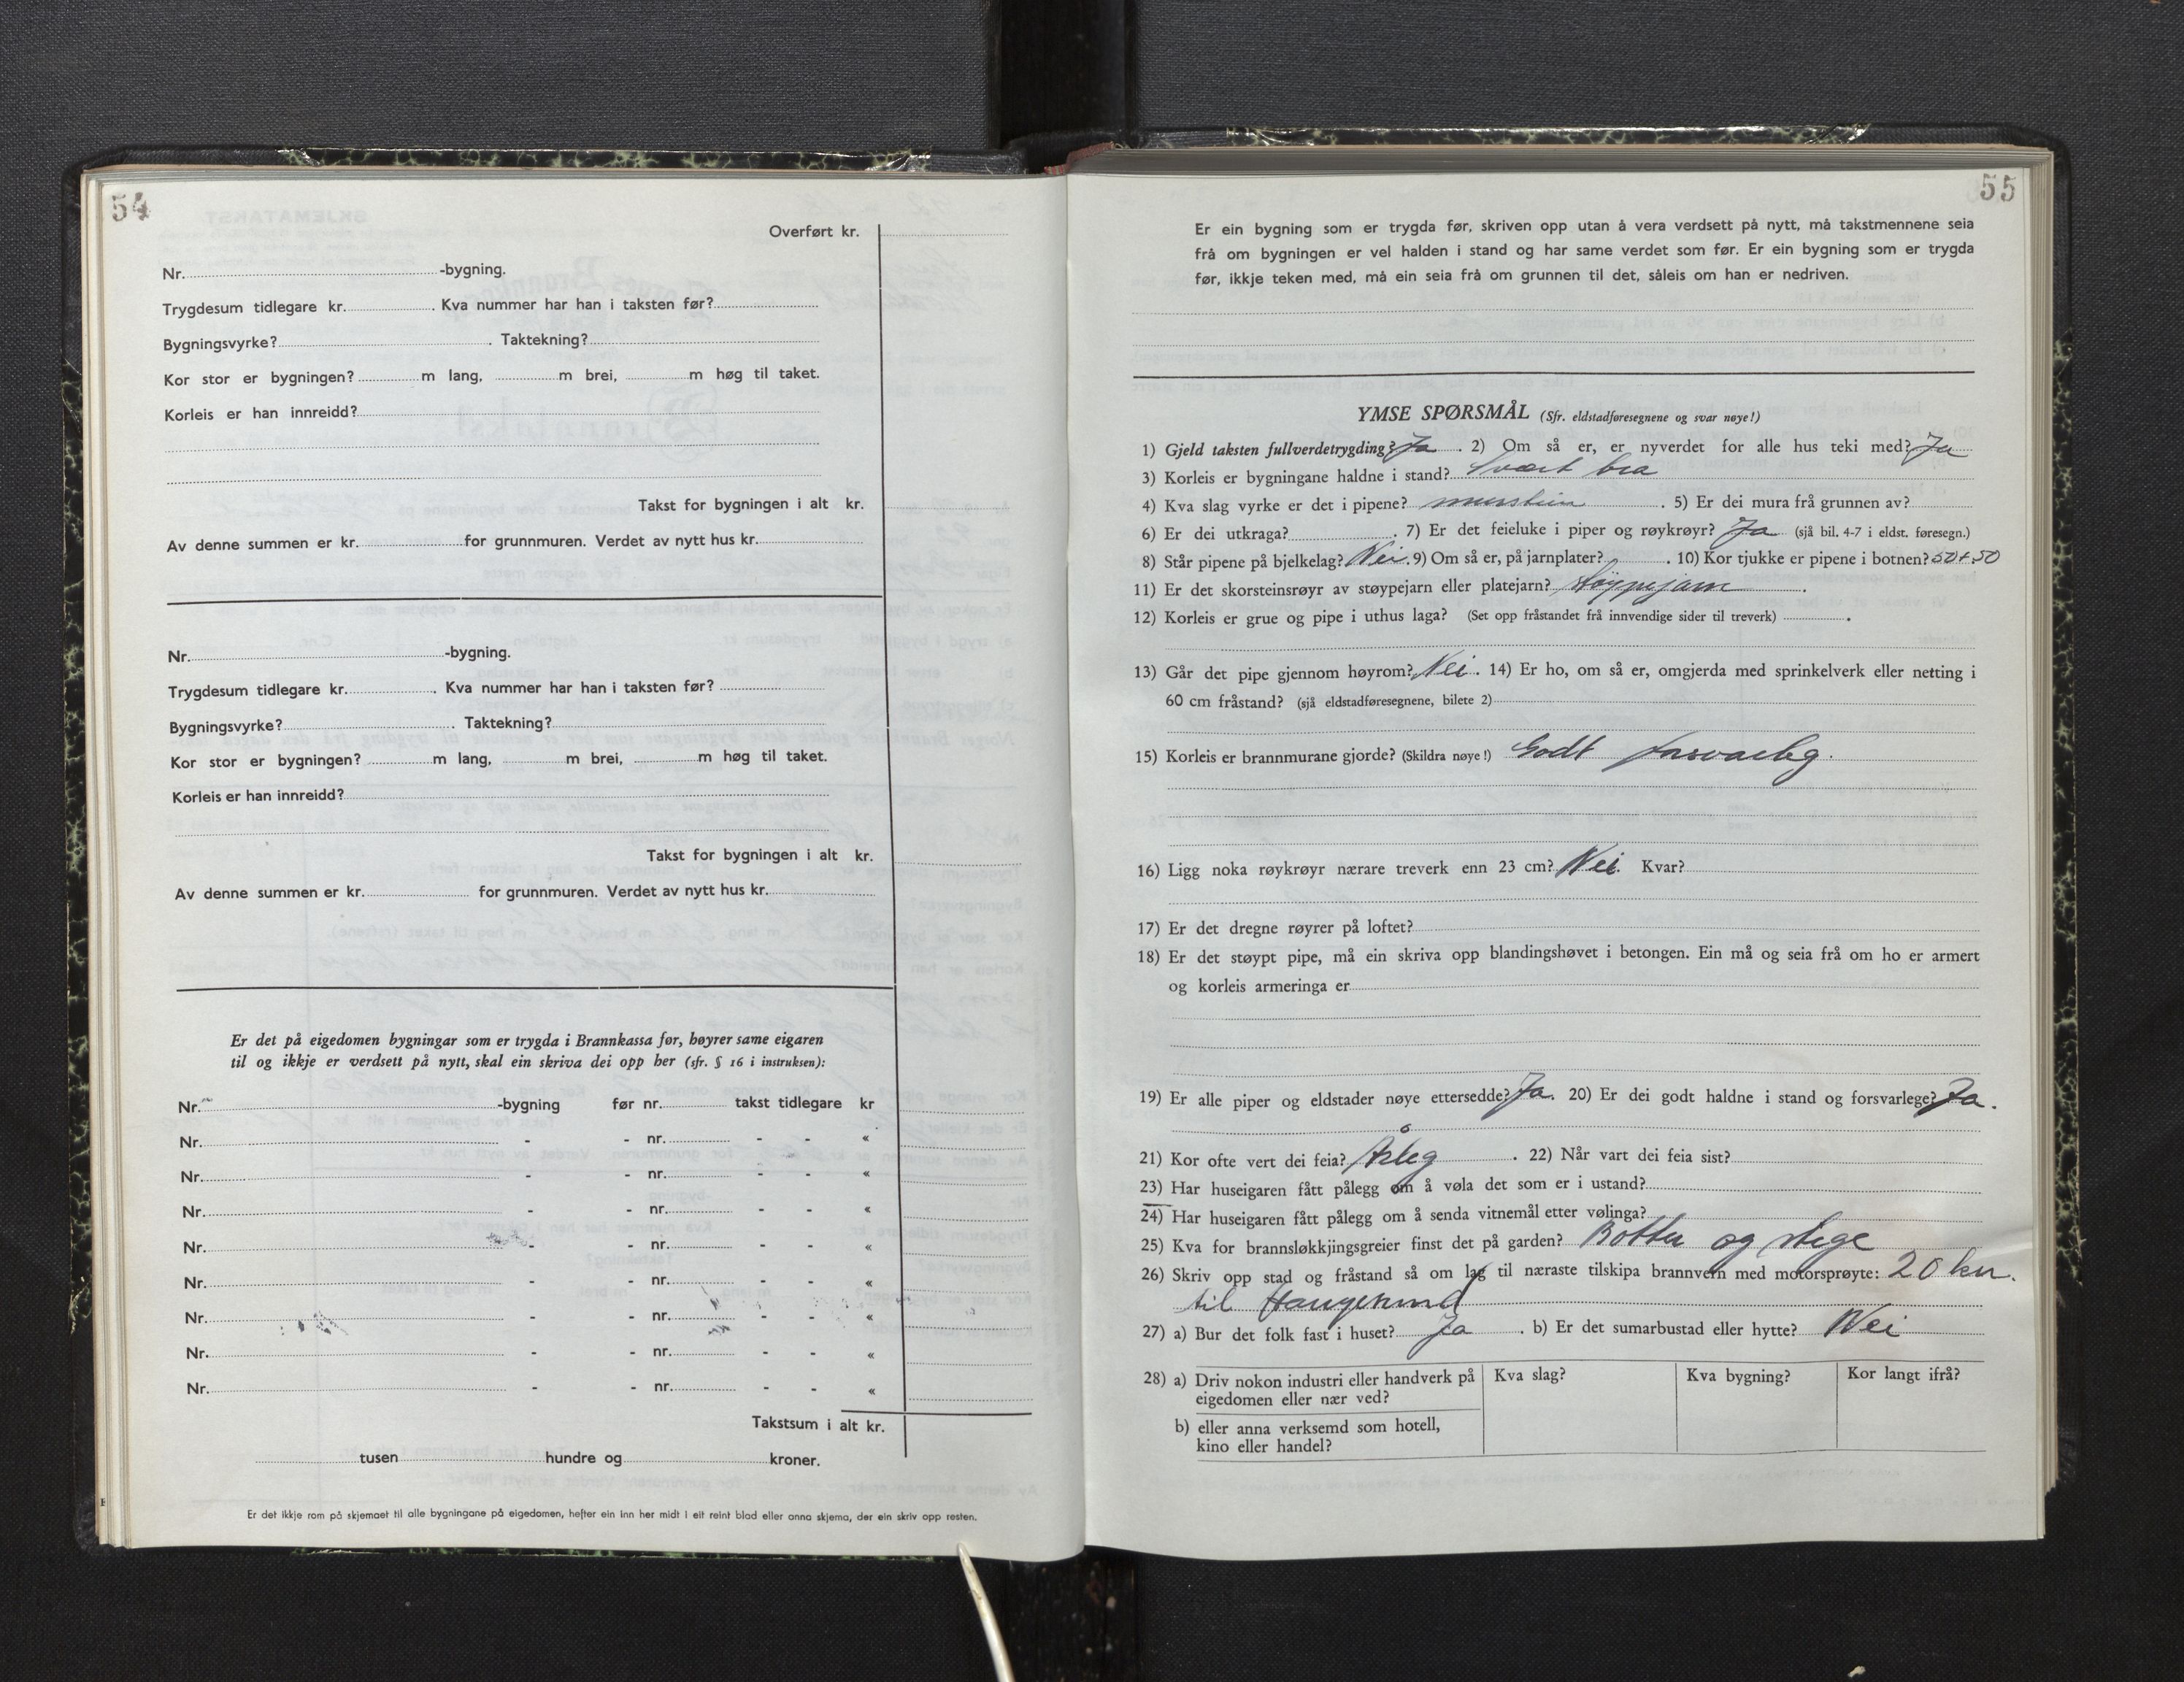 54
Overført kr.
Nr. -bygning.
Trygdesum tidlegare kr. . Kva nummer har han i taksten før?
Bygningsvyrke? . Taktekning?
Kor stor er bygningen? m lang, m brei, m høg til taket.
Korleis er han innreidd?
Takst for bygningen i alt kr.
Av denne summen er kr. for grunnmuren. Verdet av nytt hus kr.
Nr. -bygning.
Trygdesum tidlegare kr. . Kva nummer har han i taksten før?
Bygningsvyrke? . Taktekning?
Kor stor er bygningen? m lang, m brei, m høg til taket.
Korleis er han innreidd?
Takst for bygningen i alt kr.
Av denne summen er kr. for grunnmuren. Verdet av nytt hus kr.
Er det på eigedomen bygningar som er trygda i Brannkassa før, høyrer same eigaren
til og ikkje er verdsett på nytt, skal ein skriva dei opp her (sfr. § 16 i instruksen):
Nr. -bygning før nr. takst tidlegare kr
Nr. - - nr. - - «
Nr. - - nr. - - «
Nr. - - nr. - - «
Nr. - - nr. - - «
Nr. - - nr. - - «
Nr. - - nr. - - «
Nr. - - nr. - - «
Nr. - - nr. - - «
Takstsum i alt kr.
tusen hundre og kroner.
Er det ikkje rom på skjemaet til alle bygningane på eigedomen, hefter ein inn her midt i eit reint blad eller anna skjema, der ein skriv opp resten.
55
Er ein bygning som er trygda før, skriven opp utan å vera verdsett på nytt, må takstmennene seia
frå om bygningen er vel halden i stand og har same verdet som før. Er ein bygning som er trygda
før, ikkje teken med, må ein seia frå om grunnen til det, såleis om han er nedriven.
YMSE SPØRSMÅL (Sfr. eldstadføresegnene og svar nøye!)
1) Gjeld taksten fullverdetrygding? Ja . 2) Om så er, er nyverdet for alle hus teki med? Ja
3) Korleis er bygningane haldne i stand? Svært bra
4) Kva slag vyrke er det i pipene? murstein . 5) Er dei mura frå grunnen av?
6) Er dei utkraga? . 7) Er det feieluke i piper og røykrøyr? Ja (sjå bil. 4-7 i eldst. føresegn.)
8) Står pipene på bjelkelag? Nei. 9) Om så er, på jarnplater? . 10) Kor tjukke er pipene i botnen? 50+50
11) Er det skorsteinsrøyr av støypejarn eller platejarn? Støypejarn .
12) Korleis er grue og pipe i uthus laga? (Set opp fråstandet frå innvendige sider til treverk) .
13) Går det pipe gjennom høyrom? Nei. 14) Er ho, om så er, omgjerda med sprinkelverk eller netting i
60 cm fråstand? (sjå eldstadføresegnene, bilete 2)
15) Korleis er brannmurane gjorde? (Skildra nøye!) Godt forsvarleg.
16) Ligg noka røykrøyr nærare treverk enn 23 cm? Nei. Kvar?
17) Er det dregne røyrer på loftet?
18) Er det støypt pipe, må ein skriva opp blandingshøvet i betongen. Ein må og seia frå om ho er armert
og korleis armeringa er
19) Er alle piper og eldstader nøye ettersedde? Ja. 20) Er dei godt haldne i stand og forsvarlege? Ja.
21) Kor ofte vert dei feia? Årleg . 22) Når vart dei feia sist?
23) Har huseigaren fått pålegg om å vøla det som er i ustand?
24) Har huseigaren fått pålegg om å senda vitnemål etter vølinga?
25) Kva for brannsløkkjingsgreier finst det på garden? Bøtter og stege
26) Skriv opp stad og fråstand så om lag til næraste tilskipa brannvern med motorsprøyte: 20 km.
til Haugesund
27) a) Bur det folk fast i huset? Ja . b) Er det sumarbustad eller hytte? Nei
28) a) Driv nokon industri eller handverk på eigedomen eller nær ved? Kva slag? Kva bygning? Kor langt ifrå?
b) eller anna verksemd som hotell,
kino eller handel?